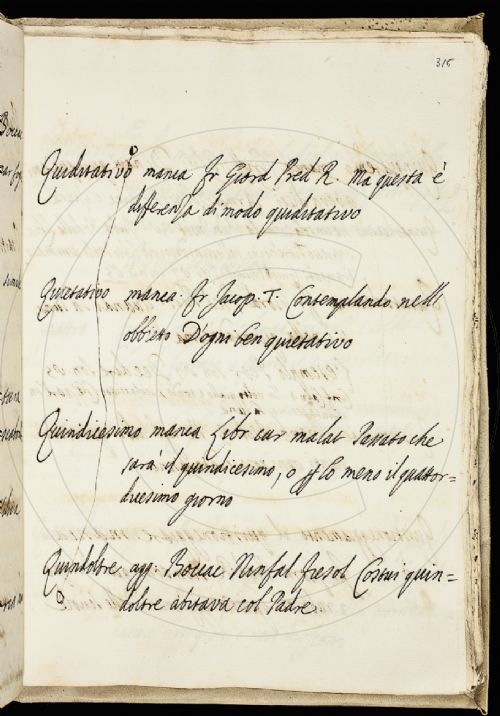 315
Quiditativo manca Fr Giord Pred R. Ma questa è
differenza di modo quiditativo
Quietativo manca. Fr Jacop. T. Contemplando nell
obbietto D'ogni ben quietativo
Quindicesimo manca Libr cur malat Passato che
sarà il quindicesimo, o p lo meno il quattor=
dicesimo giorno
Quindoltre agg. Boccac Ninfal fiesol Costui quin=
doltre abitava col Padre.